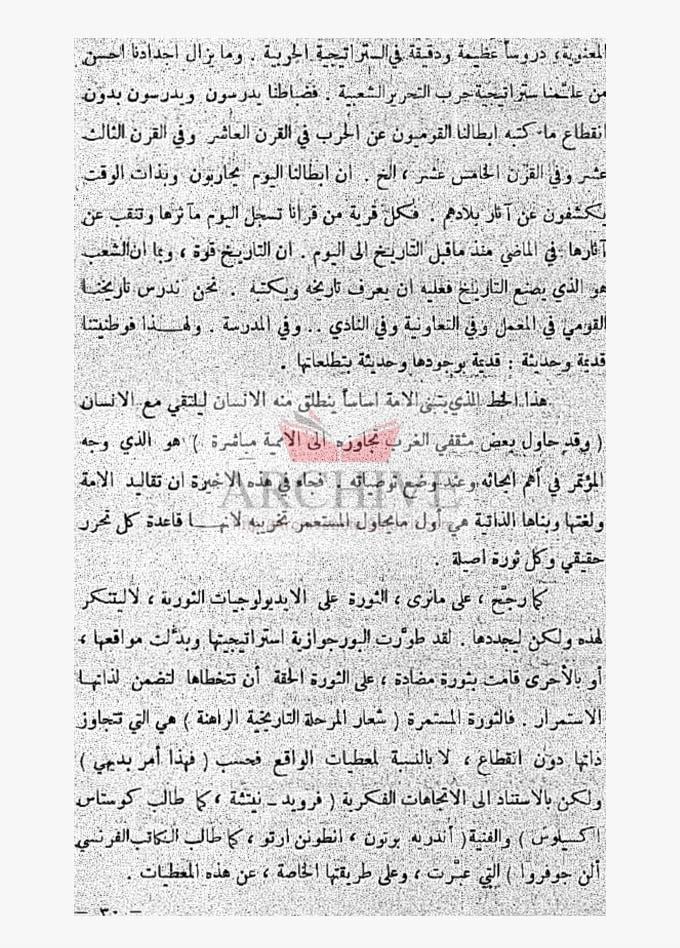 المعنوية، دروساً عظيمة ودقيقة في الستراتيجية الحربية . وما يزال اجدادنا احسن
من علّمنا ستراتيجية حرب التحرير الشعبية . فضباطنا يدرسون ويدرسون بدون
انقطاع ما كتبه ابطالنا القوميون عن الحرب في القرن العاشر وفي القرن الثالث
عشر وفي القرن الخامس عشر ، الخ . ان ابطالنا اليوم يحاربون وبذات الوقت
يكشفون عن آثار بلادهم . فكل قرية من قرانا تسجل اليوم مآثرها وتنقب عن
آثارها في الماضي منذ ماقبل التاريخ الى اليوم . ان التاريخ قوة ، وبما ان الشعب
هو الذي يصنع التاريخ فعليه ان يعرف تاريخه ويكتبه . نحن ندرس تاريخنا
القومي في المعمل وفي التعاونية وفي النادي .. وفي المدرسة . ولهذا فوطنيتنا
قديمة وحديثة : قديمة بوجودها وحديثة بتطلعاتها .
هذا الخط الذي يتبنى الامة اساساً ينطلق منه الانسان ليلتقي مع الانسان
( وقد حاول بعض مثقفي الغرب تجاوزه الى الاممية مباشرة ) هو الذي وجه
المؤتمر في أهم ابحاثه وعند وضع توصياته . فجاء في هذه الاخيرة ان تقاليد الامة
ولغتها وبناها الذاتية هي أول مايحاول المستعمر تخريبه لانها قاعدة كل تحرر
حقيقي وكل ثورة اصيلة .
ARCHIVE
كما رجّح ، على مانرى ، الثورة على الايديولوجيات الثورية ، لاليتنكر
لهذه ولكن ليجددها . لقد طوّرت البورجوازية استراتيجيتها وبدّلت مواقعها ،
أو بالأحرى قامت بثورة مضادة ، على الثورة الحقة أن تتخطاها لتضمن لذاتها
الاستمرار . فالثورة المستمرة ( شعار المرحلة التاريخية الراهنة ) هي التي تتجاوز
ذاتها دون انقطاع ، لا بالنسبة لمعطيات الواقع فحسب ( فهذا أمر بديهي )
ولكن بالاستناد الى الاتجاهات الفكرية ( فرويد ـ نيتشة ، كما طالب كوستاس
اكسيلوس ) والفنية ( أندريه برتون ، انطونن ارتو ، كما طالب الكاتب الفرنسي
ألن جوفروا ) التي عبّرت ، وعلى طريقتها الخاصة ، عن هذه المعطيات .
— ٣٠ —